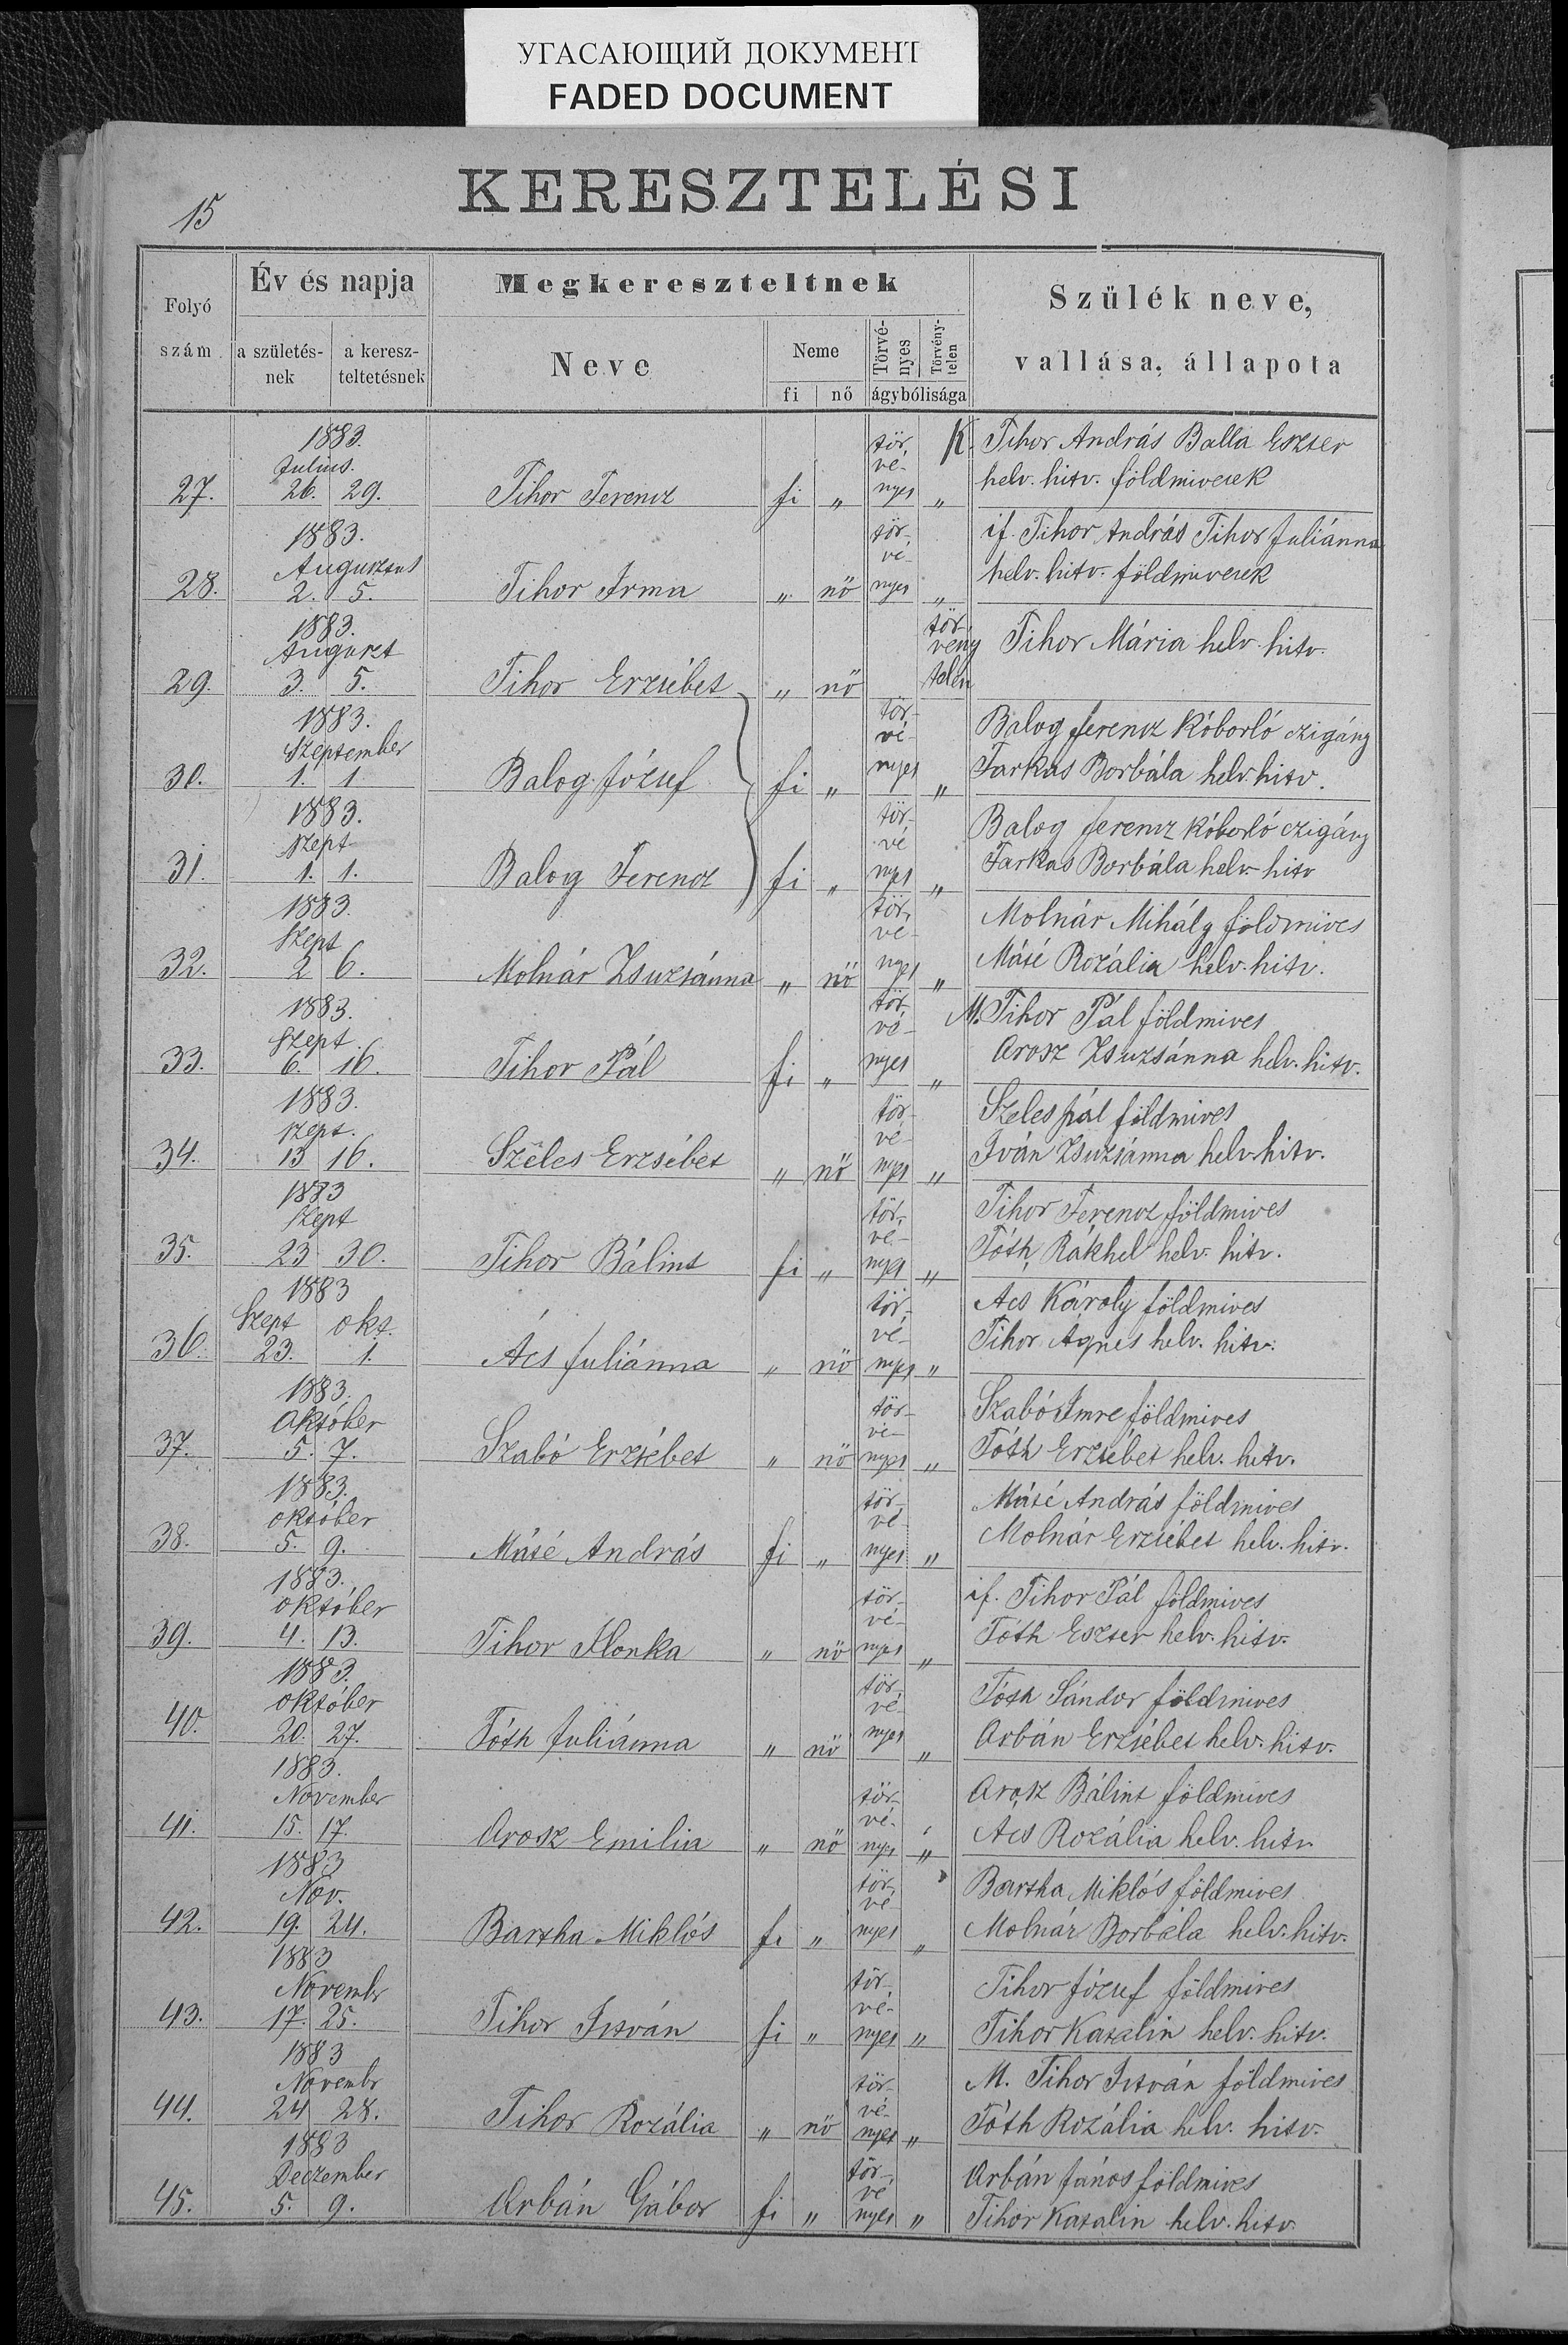 УГАСАЮЩИЙ ДОКУМЕНТ
FADED DOCUMENT
15
KERESZTELÉSI
Folyó szám
Év és napja
a születés-nek
a keresz-teltetésnek
Megkereszteltnek
Neve
Neme
fi
nő
Törvé-nyes
Törvény-telen
ágybólisága
Szülék neve,
vallása, állapota
1883.
Julius.
27. 26. 29. Tihor Ferencz fi „ tör-vé-nyes „ K. Tihor András Balla Eszter
helv. hitv. földmivesek
1883.
Augusztus
28. 2. 5. Tihor Irma „ nő tör-vé-nyes „ if. Tihor András Tihor Juliánna
helv. hitv. földmivesek
1883.
Auguszt
29. 3. 5. Tihor Erzsébet „ nő tör-vény telen Tihor Mária helv. hitv.
1883.
Szeptember
30. 1. 1 Balog József fi „ tör-vé-nyes „ Balog Ferencz Kóborló czigány
Farkas Borbála helv. hitv.
1883.
Szept
31. 1. 1. Balog Ferencz fi „ tör-vé nyes „ Balog Ferencz Kóborló czigány
Farkas Borbála helv. hitv
1883.
Szept
32. 2 6. Molnár Zsuzsánna „ nő tör-vé-nyes „ Molnár Mihály földmives
Máté Rozália helv. hitv.
1883.
Szept.
33. 6. 16. Tihor Pál fi „ tör-vé-nyes „ M. Tihor Pál földmives
Orosz Zsuzsánna helv. hitv.
1883.
szept.
34. 13 16. Széles Erzsébet „ nő tör-vé-nyes „ Szeles Pál földmives
Iván Zsuzsánna helv. hitv.
1883
Szept
35. 23 30. Tihor Bálint fi „ tör-vé-nyes „ Tihor Ferencz földmives
Tóth Rákhel helv. hitv.
1883
Szept okt.
36. 23. 1. Ács Juliánna „ nő tör-vé-nyes „ Acs Károly földmives
Tihor Ágnes helv. hitv.
1883.
Október
37. 5. 7. Szabó Erzsébet „ nő tör-vé-nyes „ Szabó Imre földmives
Tóth Erzsébet helv. hitv.
1883.
október
38. 5. 9. Máté András fi „ tör-vé-nyes „ Máté András földmives
Molnár Erzsébet helv. hitv.
1883.
október
39. 4. 13. Tihor Ilonka „ nő tör-vé-nyes „ if. Tihor Pál földmives
Tóth Eszter helv. hitv.
1883.
október
40. 20. 27. Tóth Juliánna „ nő tör-vé-nyes „ Tóth Sándor földmives
Orbán Erzsébet helv. hitv.
1883.
November
41. 15. 17. Orosz Emilia „ nő tör-vé-nyes „ Orosz Bálint földmives
Acs Rozália helv. hitv
1883
Nov.
42. 19. 24. Bartha Miklós fi „ tör-vé-nyes „ Bartha Miklós földmives
Molnár Borbála helv. hitv.
1883
Novembr
43. 17. 25. Tihor István fi „ tör-vé-nyes „ Tihor József földmives
Tihor Katalin helv. hitv.
1883
Novembr
44. 24 28. Tihor Rozália „ nő tör-vé-nyes „ M. Tihor István földmives
Tóth Rozália helv. hitv.
1883
Deczember
45. 5. 9. Orbán Gábor fi „ tör-vé nyes „ Orbán János földmives
Tihor Katalin helv. hitv.